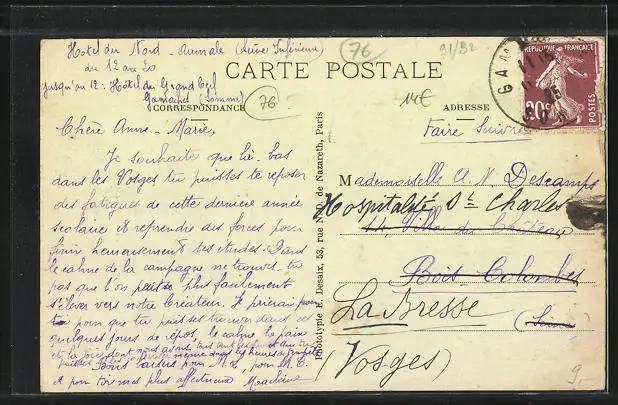 Hotel du Nord - Aumale (Seine Inférieure)
du 12 au 20
jusqu'au 12 : Hotel du Grand Cerf
Gamaches (Somme)
76
76
91/92
CARTE POSTALE
CORRESPONDANCE
ADRESSE
14€
Faire Suivre
GA
RÉPUBLIQUE FRANÇAISE
20c
POSTES
Chère Anne-Marie,
Je souhaite que là-bas
dans les Vosges tu puisses te reposer
des fatigues de cette dernière année
scolaire et reprendre des forces pour
finir heureusement tes études. Dans
le calme de la campagne ne trouves-tu
pas que l'on peut plus facilement
s'élever vers notre Créateur. Je prierai
pour que tu puisses trouver dans ces
quelques jours de repos, le calme, la paix
et la joie dont nous avons
Bons baisers pour M. L., pour M. T.
et pour toi mes plus affectueux Madeleine
Phototypie E. Desaix, 53, rue N.-D. de Nazareth, Paris
Mademoiselle A. M. Descamps
Hospitalité St Charles
44 Villa du Château
Bois Colombes
La Bresse
(Seine)
(Vosges)
9,-